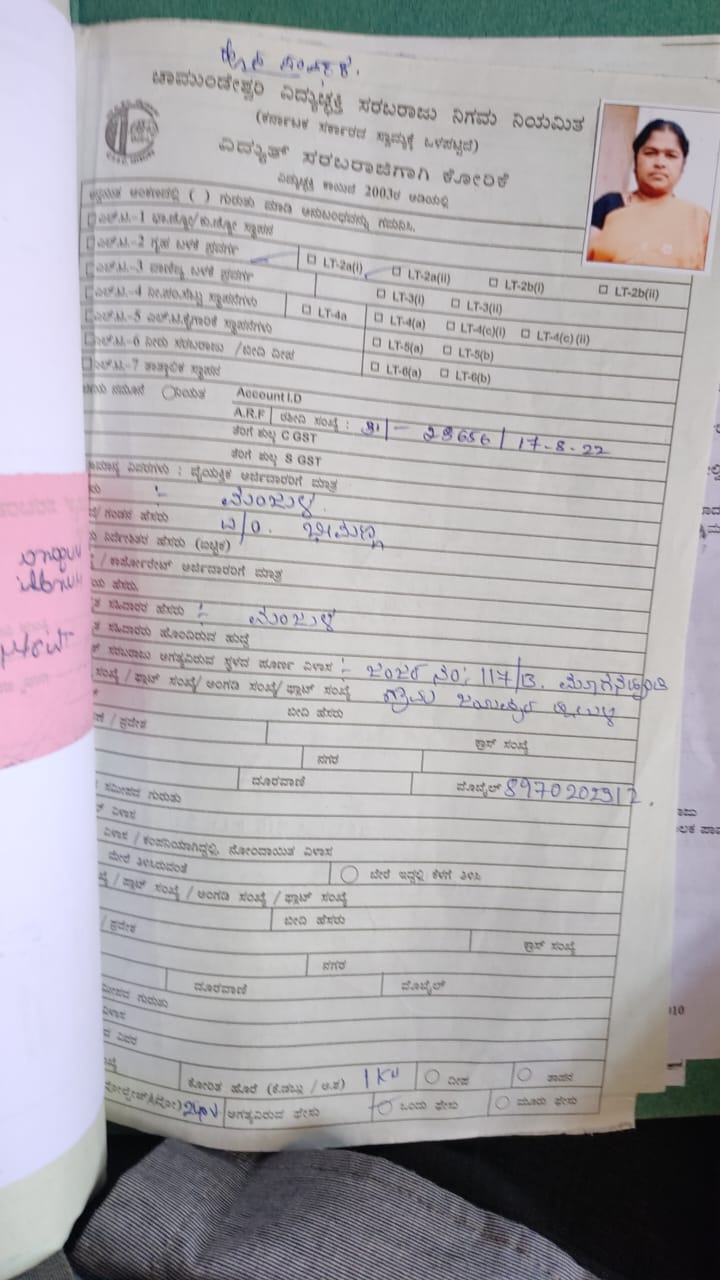 ಚಾಮುಂಡೇಶ್ವರಿ ವಿದ್ಯುಚ್ಛಕ್ತಿ ಸರಬರಾಜು ನಿಗಮ ನಿಯಮಿತ
(ಕರ್ನಾಟಕ ಸರ್ಕಾರದ ಸ್ವಾಮ್ಯಕ್ಕೆ ಒಳಪಟ್ಟಿದೆ)
ವಿದ್ಯುತ್ ಸರಬರಾಜಿಗಾಗಿ ಕೋರಿಕೆ
ವಿದ್ಯುಚ್ಛಕ್ತಿ ಕಾಯಿದೆ 2003ರ ಅಡಿಯಲ್ಲಿ
ಅಂಕಣದಲ್ಲಿ ( ) ಗುರುತು ಮಾಡಿ ಅನುಬಂಧವನ್ನು ಗಮನಿಸಿ.
ಎಲ್.ಟಿ.-1
ಎಲ್.ಟಿ.-2 ಗೃಹ ಬಳಕೆ ಪ್ರವರ್ಗ □ LT-2a(i) □ LT-2a(ii) □ LT-2b(i) □ LT-2b(ii)
ಎಲ್.ಟಿ.-3 ವಾಣಿಜ್ಯ ಬಳಕೆ ಪ್ರವರ್ಗ □ LT-3(i) □ LT-3(ii)
ಎಲ್.ಟಿ.-4 ನೀ.ಪಂ.ಸೆಟ್ಟು ಸ್ಥಾವರಗಳು □ LT-4a □ LT-4(a) □ LT-4(c)(i) □ LT-4(c)(ii)
ಎಲ್.ಟಿ.-5 ಎಲ್.ಟಿ.ಕೈಗಾರಿಕೆ ಸ್ಥಾವರಗಳು □ LT-5(a) □ LT-5(b)
ಎಲ್.ಟಿ.-6 ನೀರು ಸರಬರಾಜು /ಬೀದಿ ದೀಪ □ LT-6(a) □ LT-6(b)
ಎಲ್.ಟಿ.-7 ತಾತ್ಕಾಲಿಕ ಸ್ಥಾವರ
ನಮೂನೆ
Account I.D
A.R.F ರಶೀದಿ ಸಂಖ್ಯೆ : 28656 / 17-8-22
ತೆರಿಗೆ ಶುಲ್ಕ C GST
ತೆರಿಗೆ ಶುಲ್ಕ S GST
ವಿವರಗಳು : ವೈಯಕ್ತಿಕ ಅರ್ಜಿದಾರರಿಗೆ ಮಾತ್ರ
:- ಮಂಜುಳ
/ಗಂಡನ ಹೆಸರು
ನಿರ್ದೇಶಿತರ ಹೆಸರು (ಐಚ್ಛಿಕ)
/ ಕಾರ್ಪೋರೇಟ್ ಅರ್ಜಿದಾರರಿಗೆ ಮಾತ್ರ
ಹೆಸರು.
ಸಹಿದಾರರ ಹೆಸರು :- ಮಂಜುಳ
ಸಹಿದಾರರು ಹೊಂದಿರುವ ಹುದ್ದೆ
ಸರಬರಾಜು ಅಗತ್ಯವಿರುವ ಸ್ಥಳದ ಪೂರ್ಣ ವಿಳಾಸ :- ನಂ: 117/B.
ಸಂಖ್ಯೆ / ಪ್ಲಾಟ್ ಸಂಖ್ಯೆ/ ಅಂಗಡಿ ಸಂಖ್ಯೆ/ ಫ್ಲಾಟ್ ಸಂಖ್ಯೆ
ಬೀದಿ ಹೆಸರು
/ ಪ್ರದೇಶ ಕ್ರಾಸ್ ಸಂಖ್ಯೆ
ನಗರ
ದೂರವಾಣಿ ಮೊಬೈಲ್ 8970202312.
ಸಮೀಪದ ಗುರುತು
ವಿಳಾಸ
ವಿಳಾಸ / ಕಂಪನಿಯಾಗಿದ್ದಲ್ಲಿ, ನೋಂದಾಯಿತ ವಿಳಾಸ
ಮೇಲೆ ತಿಳಿಸಿರುವಂತೆ ಬೇರೆ ಇದ್ದಲ್ಲಿ ಕೆಳಗೆ ತಿಳಿಸಿ
/ ಪ್ಲಾಟ್ ಸಂಖ್ಯೆ / ಅಂಗಡಿ ಸಂಖ್ಯೆ / ಫ್ಲಾಟ್ ಸಂಖ್ಯೆ
ಬೀದಿ ಹೆಸರು
/ ಪ್ರದೇಶ ಕ್ರಾಸ್ ಸಂಖ್ಯೆ
ನಗರ
ದೂರವಾಣಿ ಮೊಬೈಲ್
ಗುರುತು
ವಿಳಾಸ
ವಿವರ
ಕೋರಿತ ಹೊರೆ (ಕೆ.ಡಬ್ಲ್ಯು / ಅ.ಶ) 1 KW ದೀಪ ತಾಪನ
240V ಅಗತ್ಯವಿರುವ ಫೇಸು ಒಂದು ಫೇಸು ಮೂರು ಫೇಸು